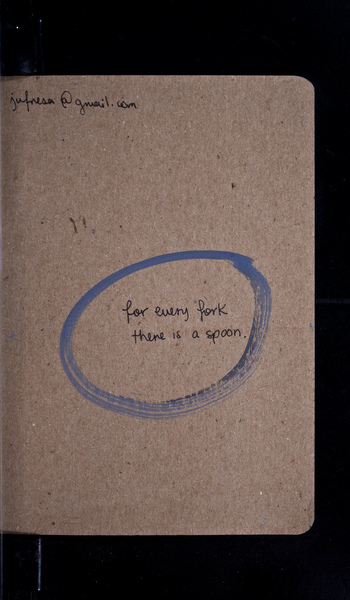 jufresa@gmail.com
for every fork
there is a spoon.